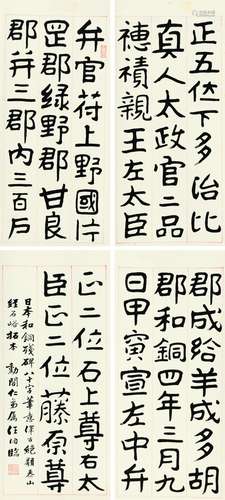 弁官苻上野國片
罡郡緑野郡甘良
郡并三郡内三百戸
郡成給羊成多胡
郡和銅四年三月九
日甲寅宣左中弁
正五位下多治比
真人太政官二品
穂積親王左太臣
正二位石上尊右太
臣正二位藤原尊
日本和銅殘碑八十字筆意保古絕類泰山
經石峪拓本 仁弟屬 臨